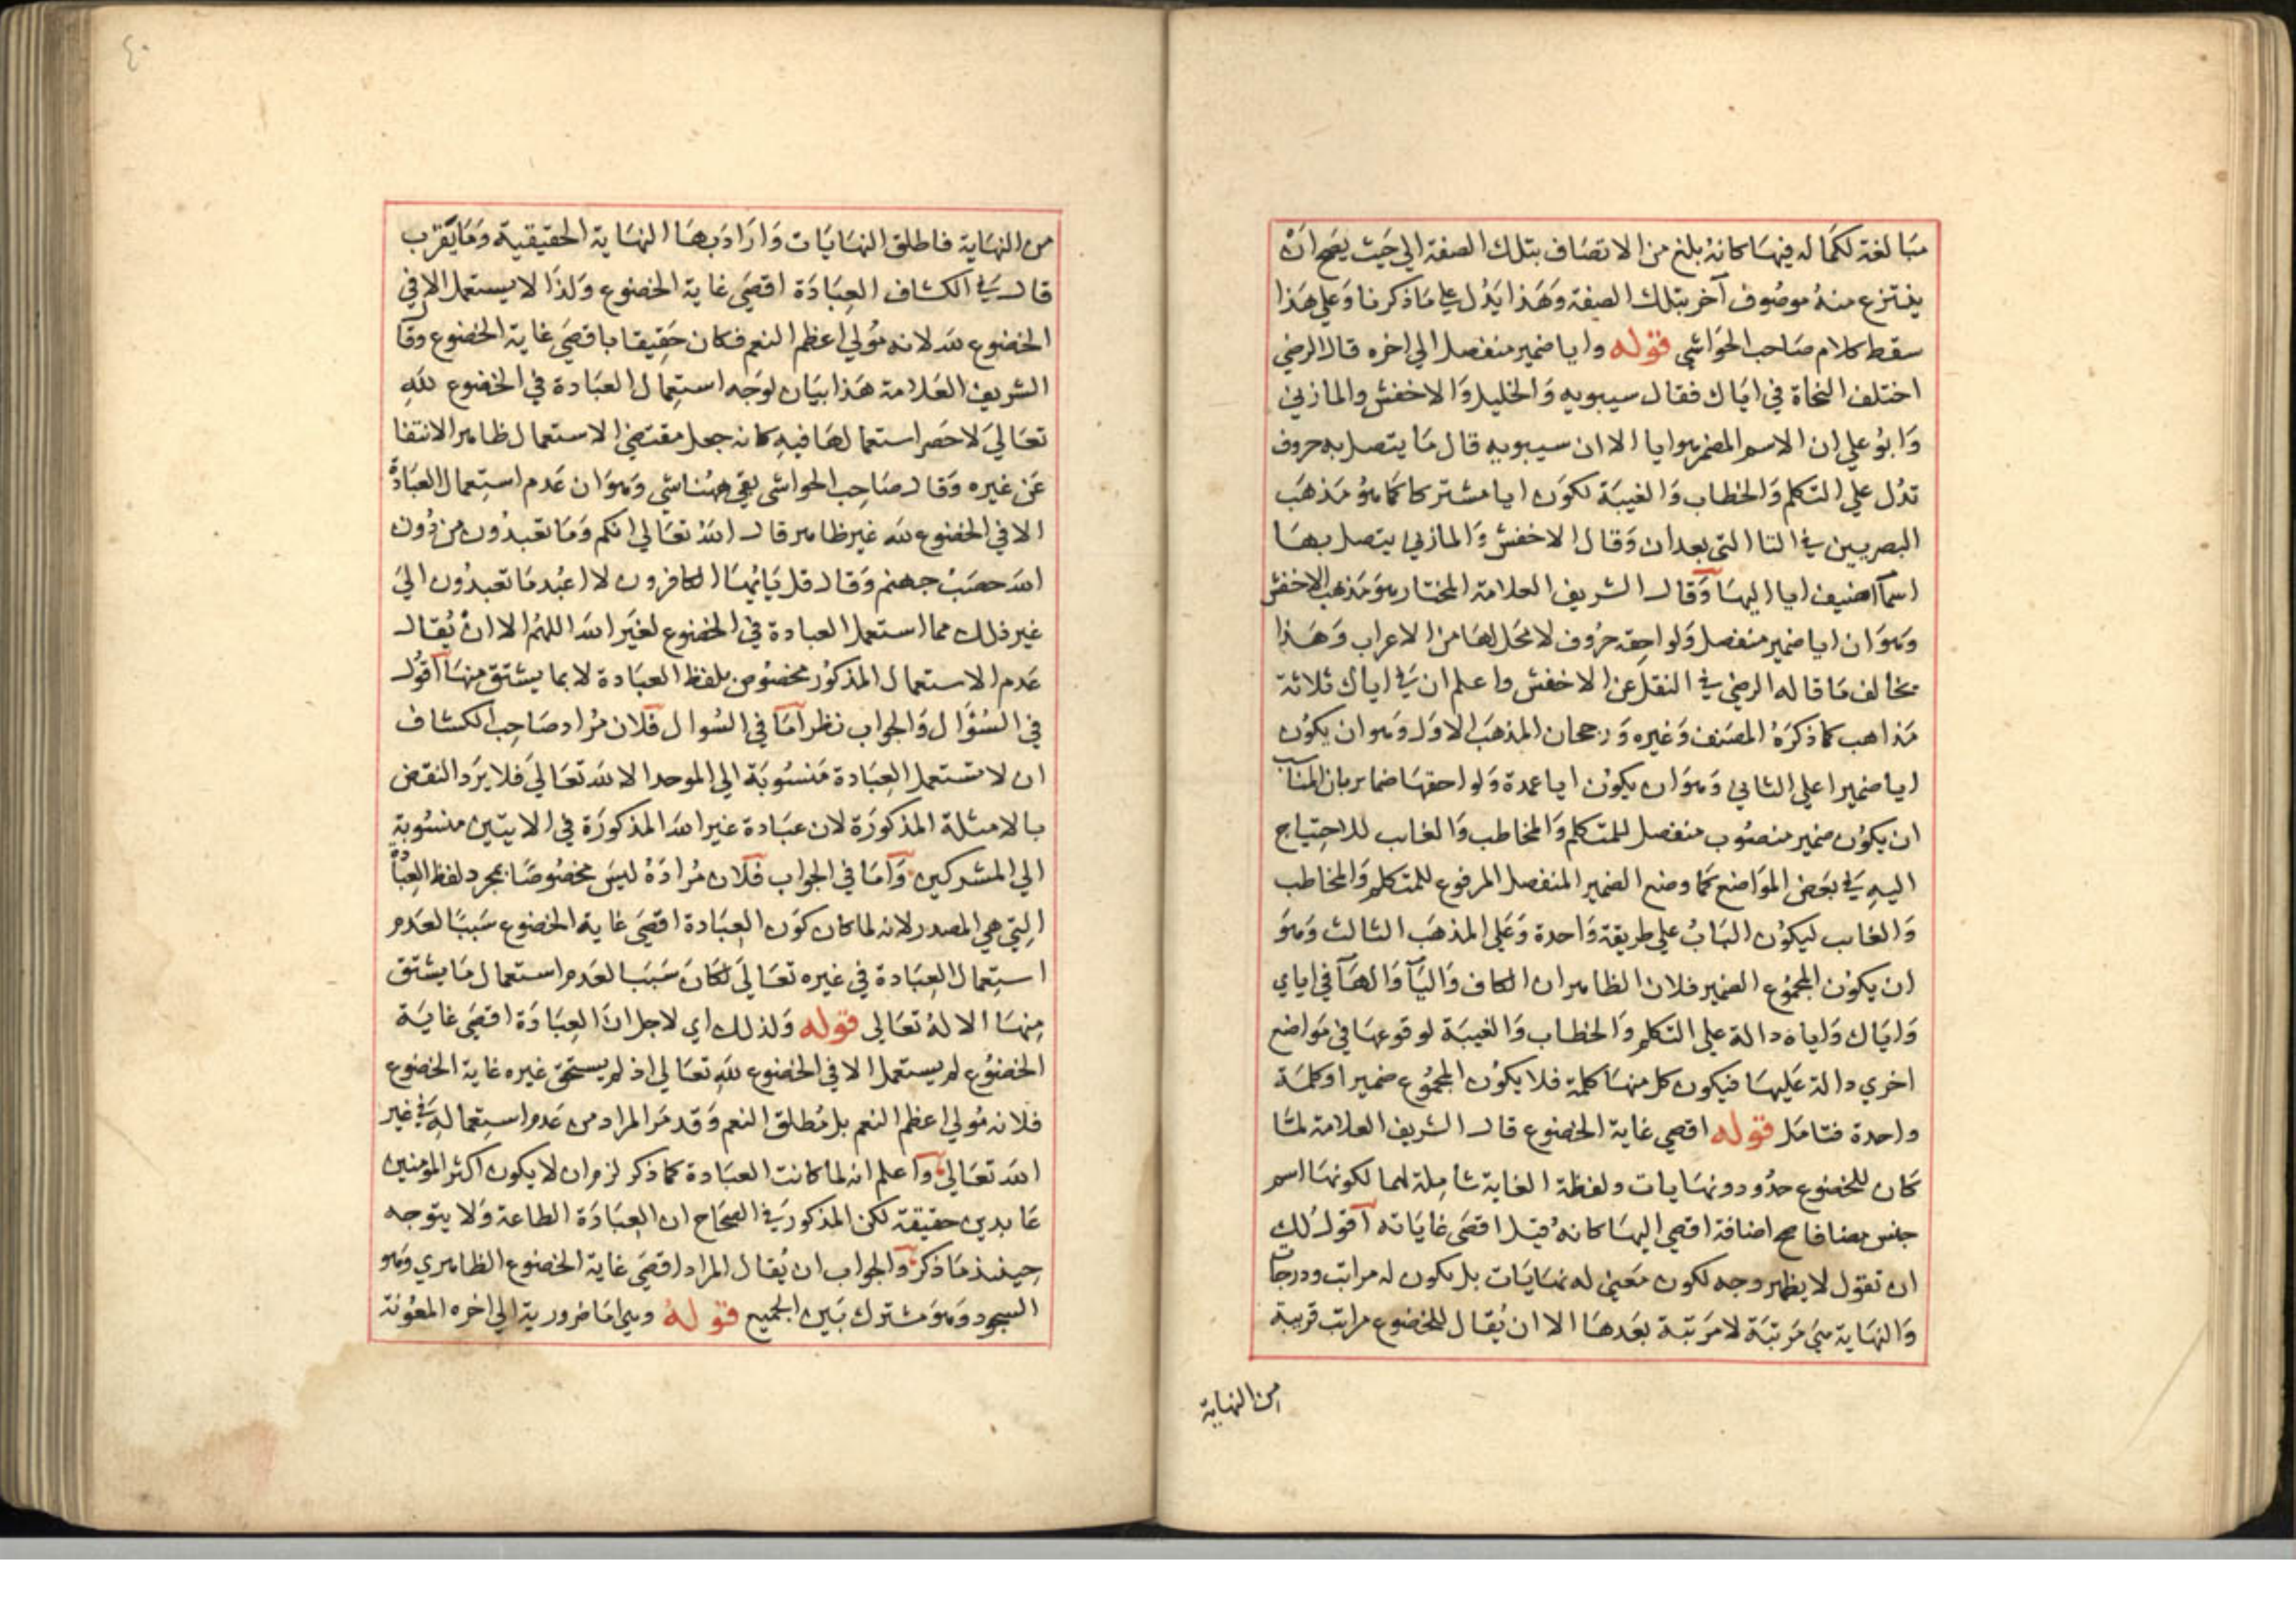 مبالغة لكماله فيها كانه بلغ من الاتصاف بتلك الصفة الي حيث يصح ان
ينتزع منه موصوف آخر بتلك الصفة وهذا يدل علي ما ذكرنا وعلي هذا
سقط كلام صاحب الحواشي قوله وايا ضمير منفصل الي اخره قال الرضي
اختلف النحاة في اياك فقال سيبويه والخليل والاخفش والمازني
وابو علي ان الاسم المضمر هو ايا الا ان سيبويه قال ما يتصل به حروف
تدل علي التكلم والخطاب والغيبة لكون ايا مشتركا كما هو مذهب
البصريين في التا التي بعد ان وقال الاخفش والمازني يتصل بها
اسما اضيف ايا اليها وقال الشريف العلامة المختار هو مذهب الاخفش
وهو ان ايا ضمير منفصل ولواحقه حروف لا محل لها من الاعراب وهذا
مخالف ما قاله الرضي في النقل عن الاخفش واعلم ان في اياك ثلاثة
مذاهب كما ذكره المصنف وغيره ورجحان المذهب الاول وهو ان يكون
ايا ضميرا علي الثاني وهو ان يكون ايا عمدة ولواحقها ضماير بان المناسب
ان يكون ضمير منصوب منفصل للمتكلم والمخاطب والغايب للاحتياج
اليه في بعض المواضع كما وضع الضمير المنفصل المرفوع للمتكلم والمخاطب
والغايب ليكون الباب علي طريقة واحدة وعلي المذهب الثالث وهو
ان يكون المجموع الضمير فلان الظاهر ان الكاف واليآ والهآ في اياي
واياك واياه دالة علي التكلم والخطاب والغيبة لوقوعها في مواضع
اخري دالة عليها فيكون كل منها كلمة فلا يكون المجموع ضميرا وكلمة
واحدة فتامل قوله اقصي غاية الخضوع قال الشريف العلامة لما
كان للخضوع حدود ونهايات ولفظة الغاية شاملة لها لكونها اسم
جنس مضافا صح اضافة اقصي اليها كانه قيل اقصي غاياته اقول لك
ان تقول لا يظهر وجه لكون معني له نهايات بل يكون له مراتب ودرجات
والنهاية هي مرتبة لا مرتبة بعدها الا ان يقال للخضوع مراتب قريبة
من النهاية
٤٠
من النهاية فاطلق النهايات واراد بها النهاية الحقيقية وما يقرب
قال في الكشاف العبادة اقصي غاية الخضوع ولذا لا يستعمل الا في
الخضوع لله لانه مولي اعظم النعم فكان حقيقا باقصي غاية الخضوع وقال
الشريف العلامة هذا بيان لوجه استعمال العبادة في الخضوع لله
تعالي لا حصر استعمالها فيه كانه جعل مقتضي الاستعمال ظاهر الانتفا
عن غيره وقال صاحب الحواشي بقي ههنا شي وهو ان عدم استعمال العبادة
الا في الخضوع لله غير ظاهر قال الله تعالي انكم وما تعبدون من دون
الله حصب جهنم وقال قل يايها الكافرون لا اعبد ما تعبدون الي
غير ذلك مما استعمل العبادة في الخضوع لغير الله اللهم الا ان يقال
عدم الاستعمال المذكور مخصوص بلفظ العبادة لا بما يشتق منها اقول
في السؤال والجواب نظر اما في السوال فلان مراد صاحب الكشاف
ان لا تستعمل العبادة منسوبة الي الموحد الا لله تعالي فلا يرد النقض
بالامثلة المذكورة لان عبادة غير الله المذكورة في الايتين منسوبة
الي المشركين واما في الجواب فلان مراده ليس مخصوصا بمجرد لفظ العبادة
التي هي المصدر لانه لما كان كون العبادة اقصي غاية الخضوع سببا لعدم
استعمال العبادة في غيره تعالي لكان سببا لعدم استعمال ما يشتق
منها الا له تعالي قوله ولذلك اي لاجل ان العبادة اقصي غاية
الخضوع لم يستعمل الا في الخضوع لله تعالي اذ لم يستحق غيره غاية الخضوع
فلانه مولي اعظم النعم بل مطلق النعم وقد مر المراد من عدم استعماله في غير
الله تعالي واعلم انه لما كانت العبادة كما ذكر لزم ان لا يكون اكثر المؤمنين
عابدين حقيقة لكن المذكور في الصحاح ان العبادة الطاعة ولا يتوجه
حينئذ ما ذكر والجواب ان يقال المراد اقصي غاية الخضوع الظاهري وهو
السجود وهو مشترك بين الجميع قوله وهي اما ضرورية الي اخره المعونة